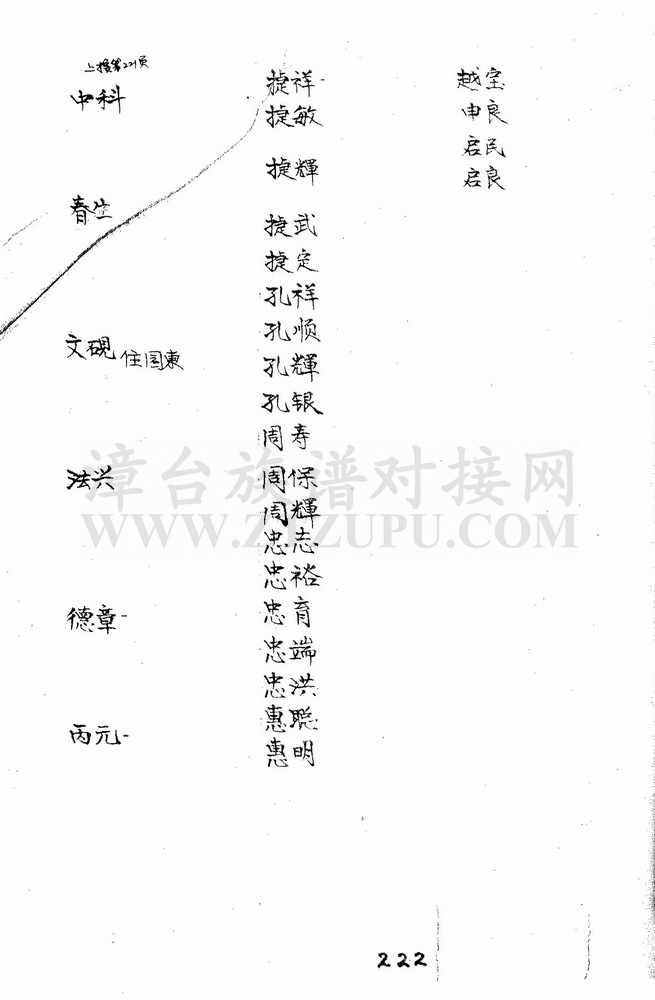 上接第221页
中科 捷祥- 越宝
捷敏 申良
启民
捷輝 启良
春生
捷武
捷定
孔祥
孔顺
文硯 住国東 孔輝
孔银
周寿
法兴 周保
周輝
忠志
忠裕
德章- 忠育
忠端
忠洪
惠聪
丙元- 惠明
漳台族谱对接网
WWW.ZTZUPU.COM
222